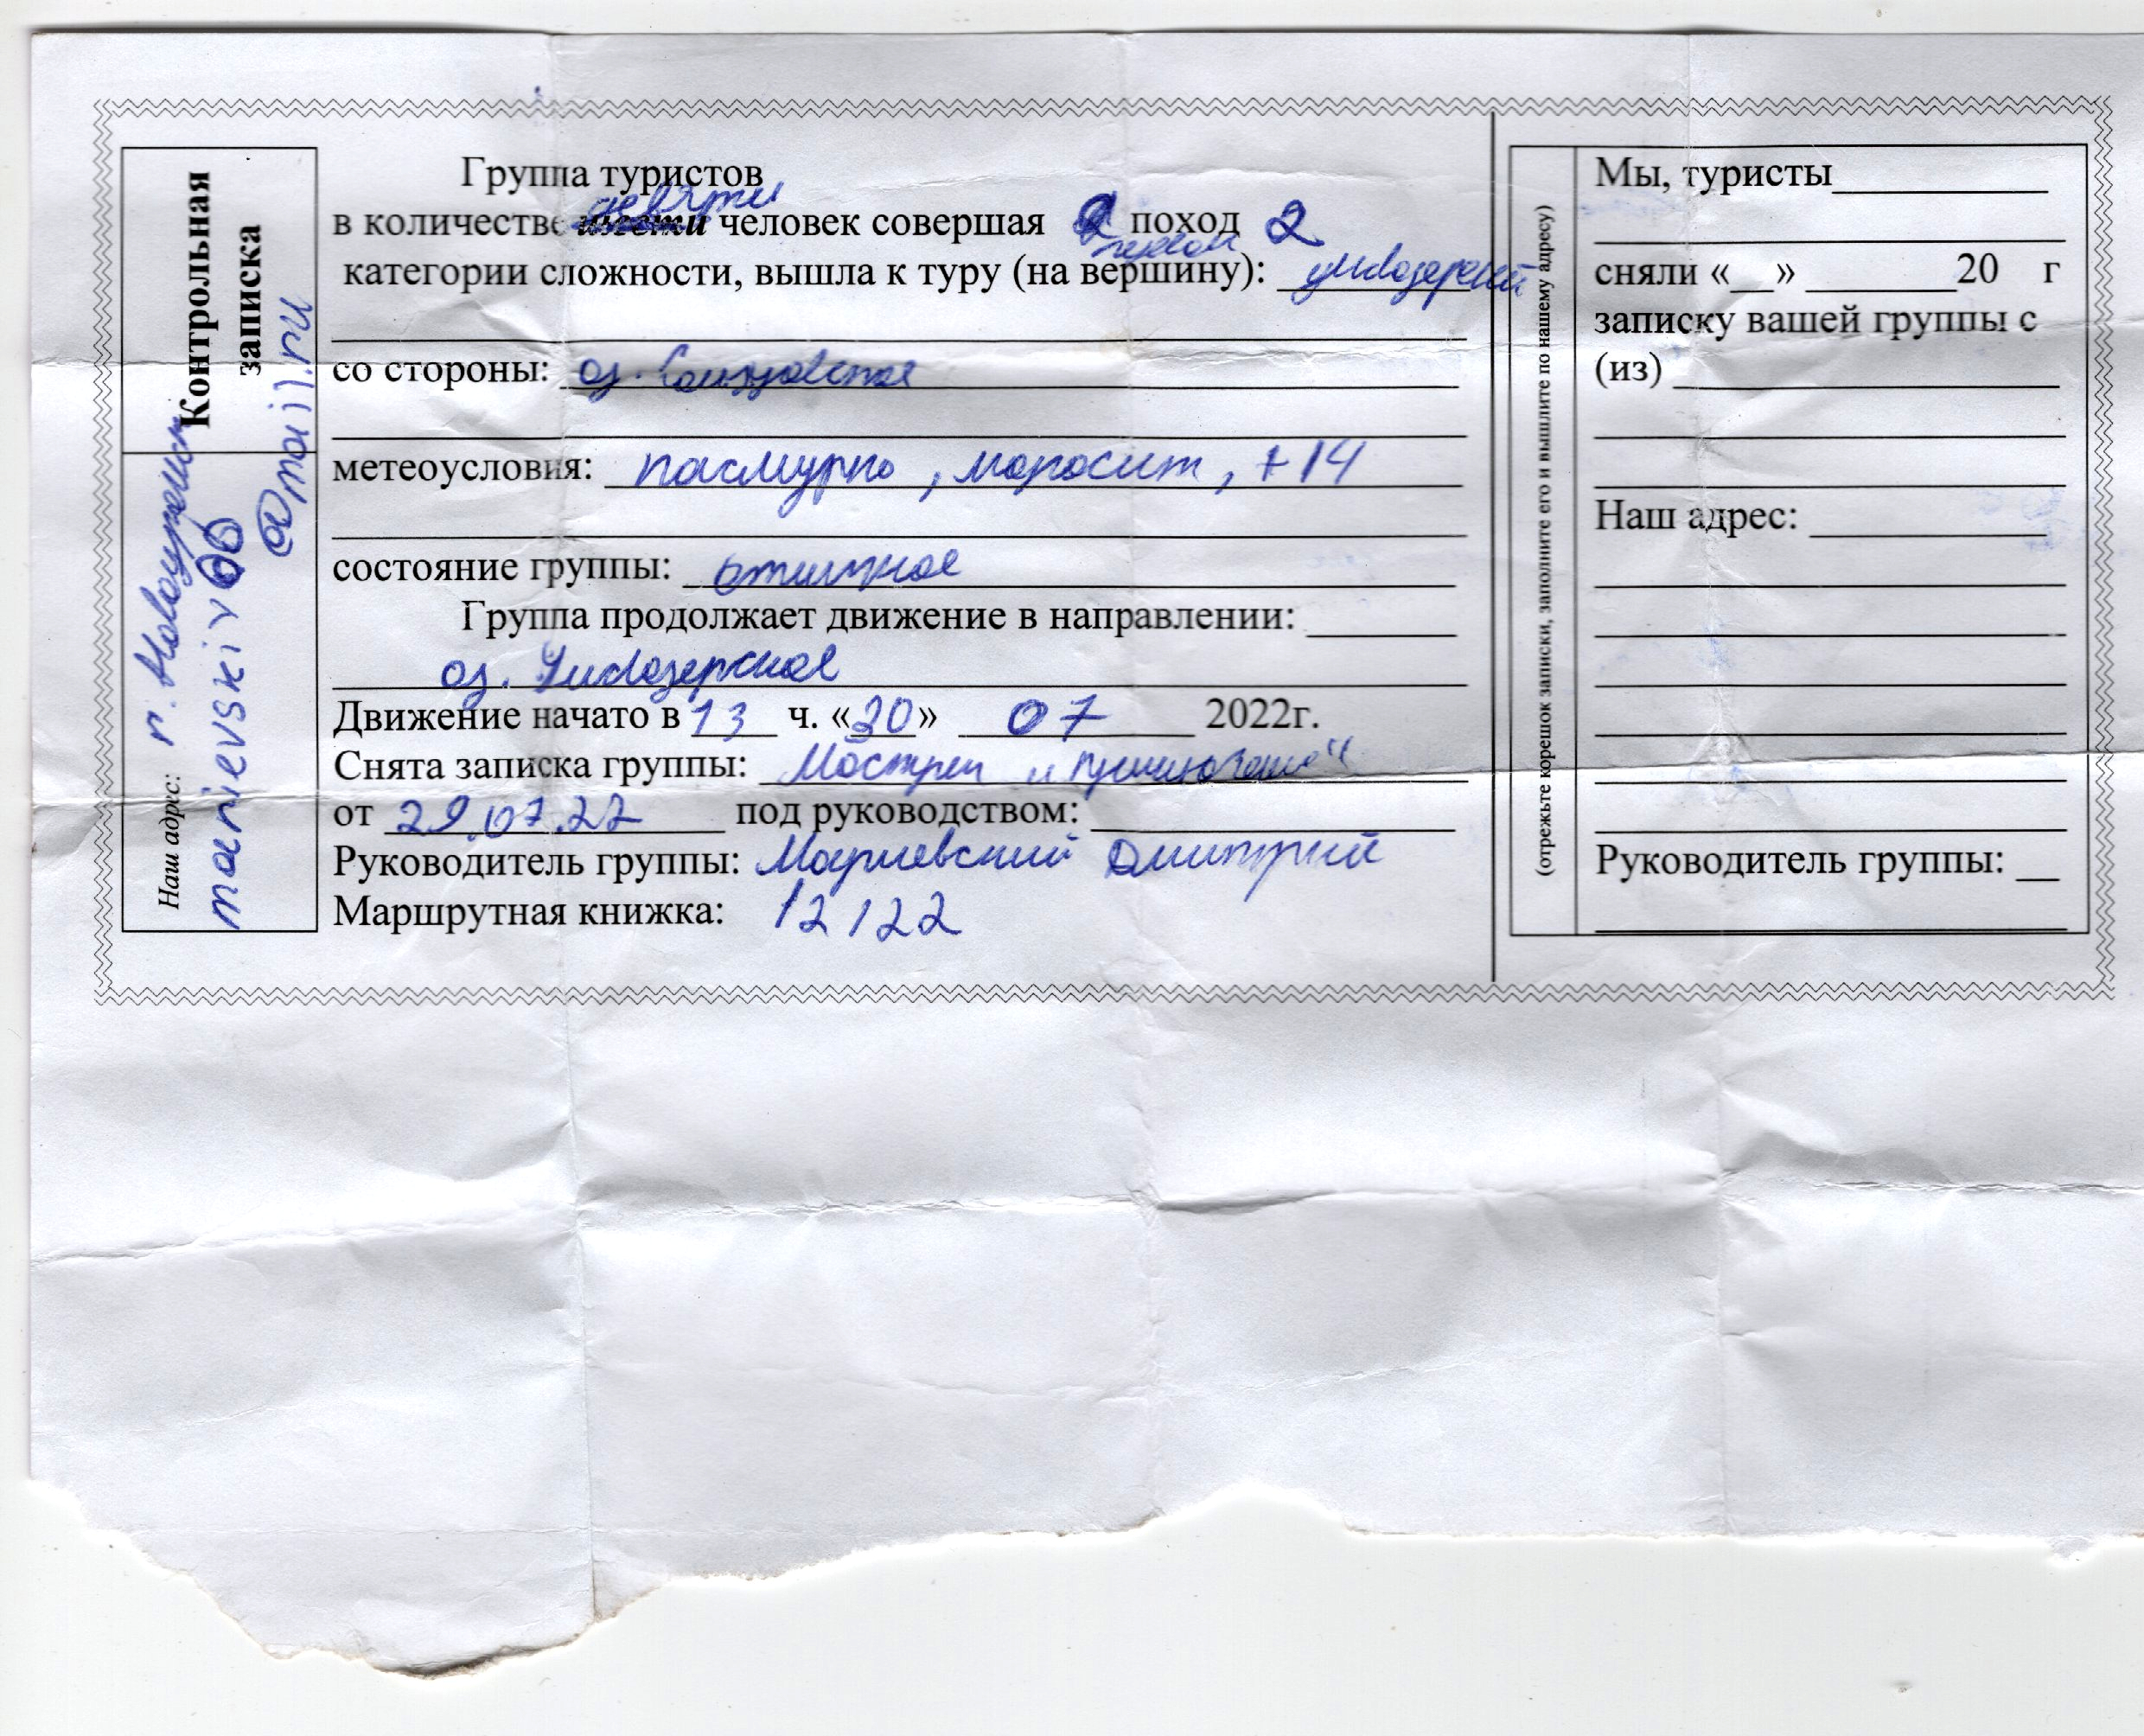 Контрольная
записка
Наш адрес:
manievskiy06
@mail.ru
Группа туристов
девяти
в количестве шести человек совершая поход 2
категории сложности, вышла к туру (на вершину):
со стороны: оз.
метеоусловия: пасмурно, моросит, +14
состояние группы: отличное
Группа продолжает движение в направлении:
оз.
Движение начато в 13 ч. «30» 07 2022г.
Снята записка группы:
от 29.07.22 под руководством:
Руководитель группы: Маниевский Дмитрий
Маршрутная книжка: 12122
(отрежьте корешок записки, заполните его и вышлите по нашему адресу)
Мы, туристы
сняли «__» 20 г
записку вашей группы с
(из)
Наш адрес:
Руководитель группы: